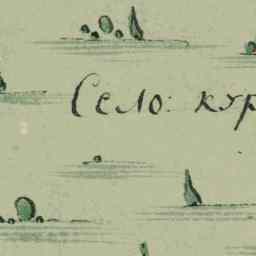 Село: кур